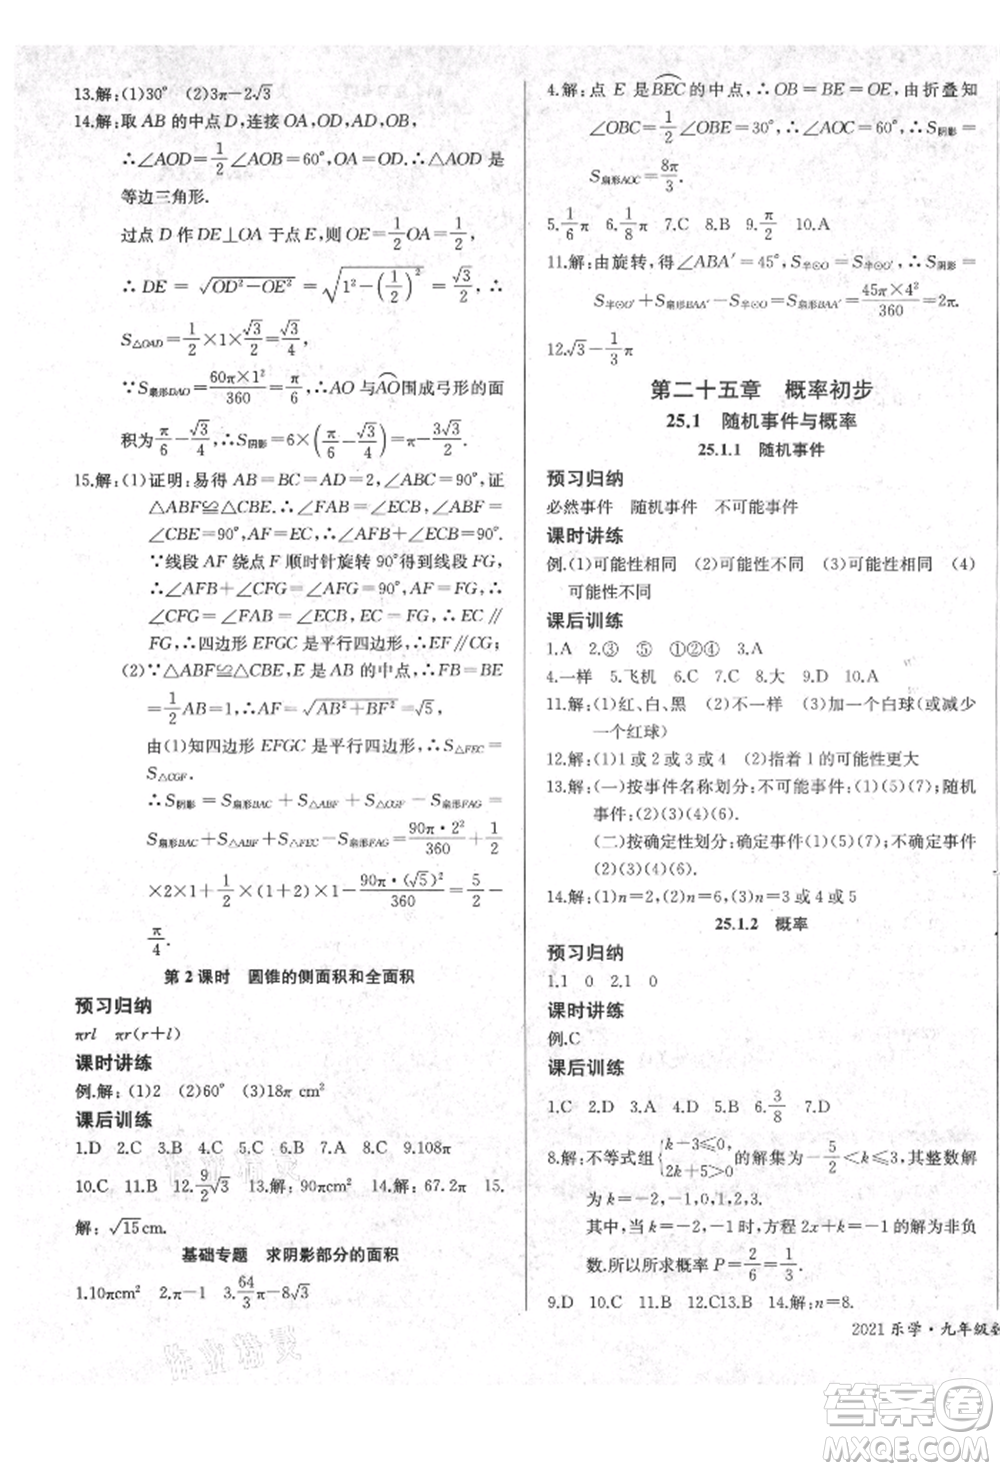 13.解:(1)30° (2)3π−2√3
14.解:取 AB 的中点 D,连接 OA,OD,AD,OB,
∴∠AOD=1/2∠AOB=60°,∴△AOD 是
等边三角形.
过点 D 作 DE⊥OA 于点 E,则 OE=1/2OA=1/2,
∴DE=√(OD²−OE²)=√(1²−(1/2)²)=√3/2,∴
S△OAD=1/2×1×√3/2=√3/4.
∵S扇形DAO=60π×1²/360=π/6,∴AO 与⌒AO围成弓形的面
积为π/6−√3/4,∴S阴影=6×(π/6−√3/4)=π−3√3/2.
15.解:(1)证明:易得 AB=BC=AD=2,∠ABC=90°,证
△ABF≌△CBE.∴∠AFB=∠CEB,∠ABF=
∠CBE=90°,AF=EC,∴∠AFB+∠FAB=90°.
∵线段 AF 绕点 F 顺时针旋转 90°得到线段 FG,
∴∠AFB+∠CFG=∠AFG=90°,
∴∠CFG=∠FAB=∠ECB,EC=FG,∴EC∥
FG,∴四边形 EFGC 是平行四边形,∴EF∥CG;
(2)∵△ABF≌△CBE,E 是 AB 的中点,∴FB=BE
=1/2AB=1,∴AF=√(AB²+BF²)=√5,
由(1)知四边形 EFGC 是平行四边形,∴S△FEC=
S△CGF.
∴S阴影=S扇形BAC+S△ABF+S△CGF−S扇形FAG=
S扇形BAC+S△ABF+S△FEC−S扇形FAG=90π·2²/360+1/2
×2×1+1/2×2×1−90π·(√5)²/360=π+2−5π/4=2−
π/4.
第 2 课时 圆锥的侧面积和全面积
预习归纳
πrl πr(r+l)
课时讲练
例.解:(1)2 (2)60° (3)18π cm²
课后训练
1.D 2.C 3.B 4.B 5.B 6.B 7.A 8.C 9.108π
10.C 11.B 12.9/2√3 13.解:90π cm² 14.解:67.2π 15.
解:√15cm.
基础专题 求阴影部分的面积
1.10πcm² 2.π−1 3.64/3π−8√3
4.解:点 E 是⌒BEC的中点,∴OB=OE=BE,由折叠知
∠OBC=1/2∠OBE=30°,∴∠AOC=60°,∴S阴影=
S扇形AOC=8π/3.
5.1/6π 6.1/8π 7.C 8.B 9.π/2 10.A
11.解:由旋转,得∠ABA′=45°,S半⊙O′=S半⊙O,∴S阴影=
S半⊙O′+S扇形BAA′−S半⊙O=S扇形BAA′=45π×4²/360=2π.
12.√3−1/3π
第二十五章 概率初步
25.1 随机事件与概率
25.1.1 随机事件
预习归纳
必然事件 随机事件 不可能事件
课时讲练
例.(1)可能性相同 (2)可能性不同 (3)可能性相同 (4)
可能性不同
课后训练
1.A 2.③ ⑤ ①②④ 3.A
4.一样 5.飞机 6.C 7.C 8.大 9.D 10.A
11.解:(1)红、白、黑 (2)不一样 (3)加一个白球(或减少
一个红球)
12.解:(1)1 或 2 或 3 或 4 (2)指着 1 的可能性更大
13.解:(一)按事件名称划分:不可能事件:(1)(5)(7);随机
事件:(2)(3)(4)(6)(8).
(二)按确定性划分:确定事件:(1)(5)(7),不确定事件
(2)(3)(4)(6)(8).
14.解:(1)n=2,(2)n=6,(3)n=3 或 4 或 5
25.1.2 概率
预习归纳
1.1 0 2.1 0
课时讲练
例.C
课后训练
1.C 2.D 3.A 4.D 5.B 6.3/8 7.D
8.解:不等式组{k−3≤0, 2k+5>0 的解集为−5/2<k≤3,其整数解
为 k=−2,−1,0,1,2,3.
其中,当 k=−2,−1 时,方程 2x+k=−1 的解为非负
数.所以所求概率 P=2/6=1/3.
9.D 10.C 11.B 12.B 13.A 14.解:n=8.
2021 乐学·九年级
答案圈
MXQE.COM